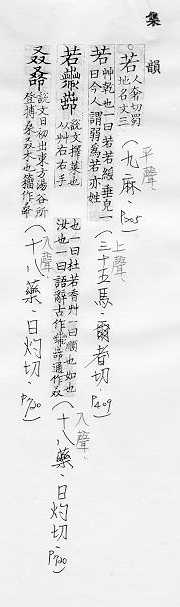 集韻
。若 人奢切蜀地名文三 (九麻、P205 平聲、
若 艸乾也一曰若若綬垂皃一曰今人謂弱為若亦姓 (三十五馬、爾者切、P409 上聲、
若 說文擇菜也从艸右右手也一曰杜若香艸一曰順也如也汝也一曰語辭古作 通作叒 (十八藥、日灼切、P720 入聲、
叒 說文日初出東方湯谷所登榑桑叒木也籀作 (十八藥、日灼切、P720 入聲、